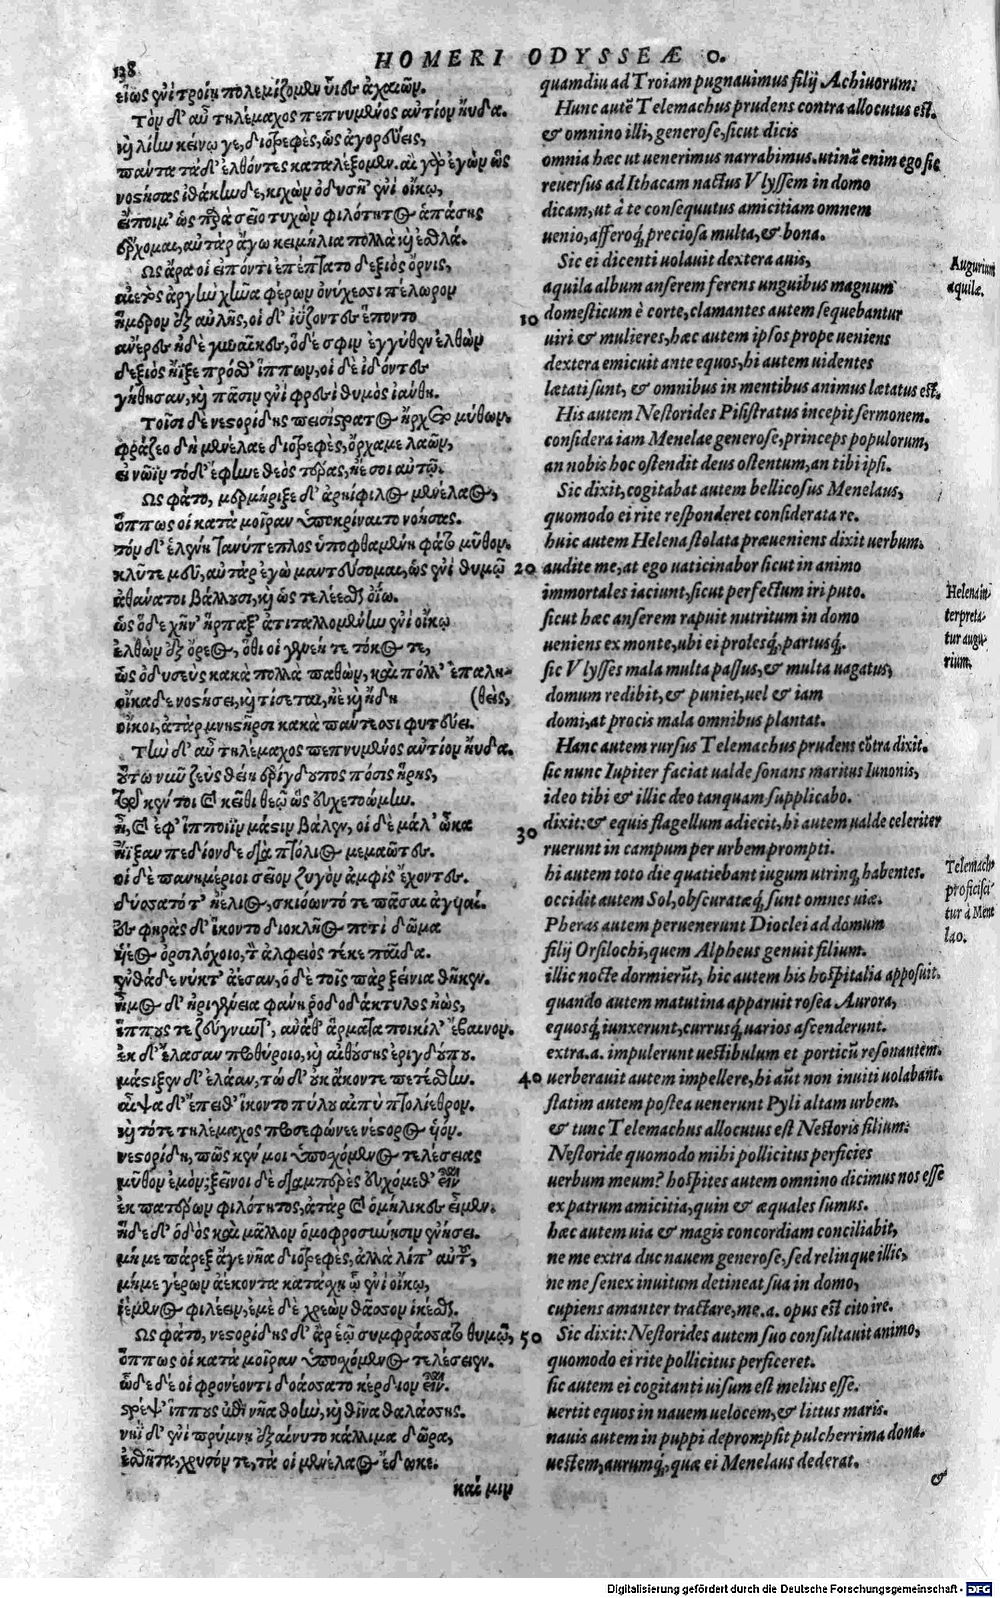 138
HOMERI ODYSSEÆ O.
εἵως ἐνὶ τροίῃ πολεμίζομεν υἷες ἀχαιῶν.
Τὸν δ' αὖ τηλέμαχος πεπνυμένος αὐτίον ηὔδα.
καὶ λίην κείνῳ γε, διοτρεφὲς, ὡς ἀγορεύεις,
πάντα τάδ' ἐλθόντες καταλέξομεν. αἲ γὰρ ἐγὼν ὣς
νοστήσας ἰθάκην δε, κιχὼν ὀδυσῆ' ἐνὶ οἴκῳ,
εἴποιμ' ὡς παρὰ σεῖο τυχὼν φιλότητος ἁπάσης
ἔρχομαι, αὐτὰρ ἄγω κειμήλια πολλὰ καὶ ἐσθλά.
Ως ἄρα οἱ εἰπόντι ἐπέπτατο δεξιὸς ὄρνις,
αἰετὸς ἀργὴν χῆνα φέρων ὀνύχεσσι πέλωρον
ἥμερον ἐξ αὐλῆς, οἱ δ' ἰΰζοντες ἕποντο
ἀνέρες ἠδὲ γυναῖκες, ὁ δέ σφιν ἐγγύθεν ἐλθὼν
δεξιὸς ἤϊξε πρόσθ' ἵππων, οἱ δὲ ἰδόντες
γήθησαν, καὶ πᾶσιν ἐνὶ φρεσὶ θυμὸς ἰάνθη.
Τοῖσι δὲ νεστορίδης πεισίστρατος ἤρχετο μύθων.
φράζεο δὴ μενέλαε διοτρεφὲς, ὄρχαμε λαῶν,
εἰ νῶϊν τόδ' ἔφηνε θεὸς τέρας, ἦέ σοι αὐτῷ.
Ως φάτο, μερμήριξε δ' ἀρηίφιλος μενέλαος,
ὅππως οἱ κατὰ μοῖραν ὑποκρίναιτο νοήσας.
τὸν δ' ἑλένη τανύπεπλος ὑποφθαμένη φάτο μῦθον.
κλῦτε μευ, αὐτὰρ ἐγὼ μαντεύσομαι, ὡς ἐνὶ θυμῷ
ἀθάνατοι βάλλουσι, καὶ ὡς τελέεσθαι ὀΐω.
ὡς ὅδε χῆν' ἥρπαξ' ἀτιταλλομένην ἐνὶ οἴκῳ
ἐλθὼν ἐξ ὄρεος, ὅθι οἱ γενεή τε τόκος τε,
ὣς ὀδυσεὺς κακὰ πολλὰ παθὼν, καὶ πόλλ' ἐπαλη-
οἴκαδε νοστήσει, καὶ τίσεται, ἠὲ καὶ ἤδη (θεὶς,
οἴκοι, ἀτὰρ μνηστῆρσι κακὰ πάντεσσι φυτεύει.
Τὴν δ' αὖ τηλέμαχος πεπνυμένος αὐτίον ηὔδα.
οὕτω νῦν ζεὺς θείη ἐρίγδουπος πόσις ἥρης,
τῷ κέν τοι καὶ κεῖθι θεῷ ὣς εὐχετοώμην.
ἦ, καὶ ἐφ' ἵπποιϊν μάστιν βάλεν, οἱ δὲ μάλ' ὦκα
ἤϊξαν πεδίονδε διὰ πτόλιος μεμαῶτες.
οἱ δὲ πανημέριοι σεῖον ζυγὸν ἀμφὶς ἔχοντες.
δύσσατό τ' ἠέλιος, σκιόωντό τε πᾶσαι ἀγυιαί.
ἐς φηρὰς δ' ἵκοντο διοκλῆος ποτὶ δῶμα
υἱέος ὀρσιλόχοιο, τ' ἀλφειὸς τέκε παῖδα.
ἐνθάδε νύκτ' ἄεσαν, ὁ δὲ τοῖς πὰρ ξείνια θῆκεν.
ἦμος δ' ἠριγένεια φάνη ῥοδοδάκτυλος ἠὼς,
ἵππους τε ζεύγνυντ', ἀνάθ' ἅρματα ποικίλ' ἔβαινον.
ἐκ δ' ἔλασαν προθύροιο, καὶ αἰθούσης ἐριγδούπου.
μάστιξεν δ' ἐλάαν, τὼ δ' οὐκ ἄκοντε πετέσθην.
αἶψα δ' ἔπειθ' ἵκοντο πύλου αἰπὺ πτολίεθρον.
καὶ τότε τηλέμαχος προσεφώνεε νέστορος υἱόν.
νεστορίδη, πῶς κέν μοι ὑποσχόμενος τελέσειας
μῦθον ἐμόν; ξεῖνοι δὲ διαμπερὲς εὐχόμεθ' εἶναι
ἐκ πατέρων φιλότητος, ἀτὰρ καὶ ὁμήλικες εἰμέν.
ἥδε δ' ὁδὸς καὶ μᾶλλον ὁμοφροσύνῃσιν ἐνήσει.
μή με πάρεξ ἄγε νῆα διοτρεφὲς, ἀλλὰ λίπ' αὐτοῦ,
μή με γέρων ἀέκοντα κατάσχῃ ᾧ ἐνὶ οἴκῳ,
ἱέμενος φιλέειν, ἐμὲ δὲ χρεὼν θᾶσσον ἱκέσθαι.
Ως φάτο, νεστορίδης δ' ἄρ ἑῷ συμφράσσατο θυμῷ,
ὅππως οἱ κατὰ μοῖραν ὑποσχόμενος τελέσειεν.
ὧδε δέ οἱ φρονέοντι δοάσσατο κέρδιον εἶναι.
στρέψ' ἵππους ἐπὶ νῆα θοὴν, καὶ θῖνα θαλάσσης.
νηῒ δ' ἐνὶ πρύμνῃ ἐξαίνυτο κάλλιμα δῶρα,
ἐσθῆτα, χρυσόν τε, τά οἱ μενέλαος ἔδωκε.
καί μιν
quamdiu ad Troiam pugnauimus filij Achiuorum:
Hunc autē Telemachus prudens contra allocutus est.
& omnino illi, generose, sicut dicis
omnia hæc ut uenerimus narrabimus. utinā enim ego sic
reuersus ad Ithacam nactus Vlyssem in domo
dicam, ut à te consequutus amicitiam omnem
uenio, afferoq́; preciosa multa, & bona.
Sic ei dicenti uolauit dextera auis,
aquila album anserem ferens unguibus magnum
10 domesticum è corte, clamantes autem sequebantur
uiri & mulieres, hæc autem ipsos prope ueniens
dextera emicuit ante equos, hi autem uidentes
lætati sunt, & omnibus in mentibus animus lætatus est.
His autem Nestorides Pisistratus incepit sermonem.
considera iam Menelae generose, princeps populorum,
an nobis hoc ostendit deus ostentum, an tibi ipsi.
Sic dixit, cogitabat autem bellicosus Menelaus,
quomodo ei rite responderet considerata re.
huic autem Helena stolata præueniens dixit uerbum.
20 audite me, at ego uaticinabor sicut in animo
immortales iaciunt, sicut perfectum iri puto.
sicut hæc anserem rapuit nutritum in domo
ueniens ex monte, ubi ei prolesq́, partusq́,
sic Vlysses mala multa passus, & multa uagatus,
domum redibit, & puniet, uel & iam
domi, at procis mala omnibus plantat.
Hanc autem rursus Telemachus prudens cōtra dixit.
sic nunc Iupiter faciat ualde sonans maritus Iunonis,
ideo tibi & illic deo tanquam supplicabo.
30 dixit: & equis flagellum adiecit, hi autem ualde celeriter
ruerunt in campum per urbem prompti.
hi autem toto die quatiebant iugum utrinq́; habentes.
occidit autem Sol, obscuratæq́; sunt omnes uiæ.
Pheras autem peruenerunt Dioclei ad domum
filij Orsilochi, quem Alpheus genuit filium.
illic nocte dormierūt, hic autem his hospitalia apposuit.
quando autem matutina apparuit rosea Aurora,
equosq́; iunxerunt, currusq́; uarios ascenderunt.
extra.a. impulerunt uestibulum et porticū resonantem.
40 uerberauit autem impellere, hi aūt non inuiti uolabant.
statim autem postea uenerunt Pyli altam urbem.
& tunc Telemachus allocutus est Nestoris filium:
Nestoride quomodo mihi pollicitus perficies
uerbum meum? hospites autem omnino dicimus nos esse
ex patrum amicitia, quin & æquales sumus.
hæc autem uia & magis concordiam conciliabit,
ne me extra duc nauem generose, sed relinque illic,
ne me senex inuitum detineat sua in domo,
cupiens amanter tractare, me.a. opus est cito ire.
50 Sic dixit: Nestorides autem suo consultauit animo,
quomodo ei rite pollicitus perficeret.
sic autem ei cogitanti uisum est melius esse.
uertit equos in nauem uelocem, & littus maris.
nauis autem in puppi deprompsit pulcherrima dona.
uestem, aurumq́;, quæ ei Menelaus dederat.
&
Augurium
aquilæ.
Helena in-
terpreta-
tur augu-
rium.
Telemach9
proficisci
tur à Mene
lao.
Digitalisierung gefördert durch die Deutsche Forschungsgemeinschaft - DFG